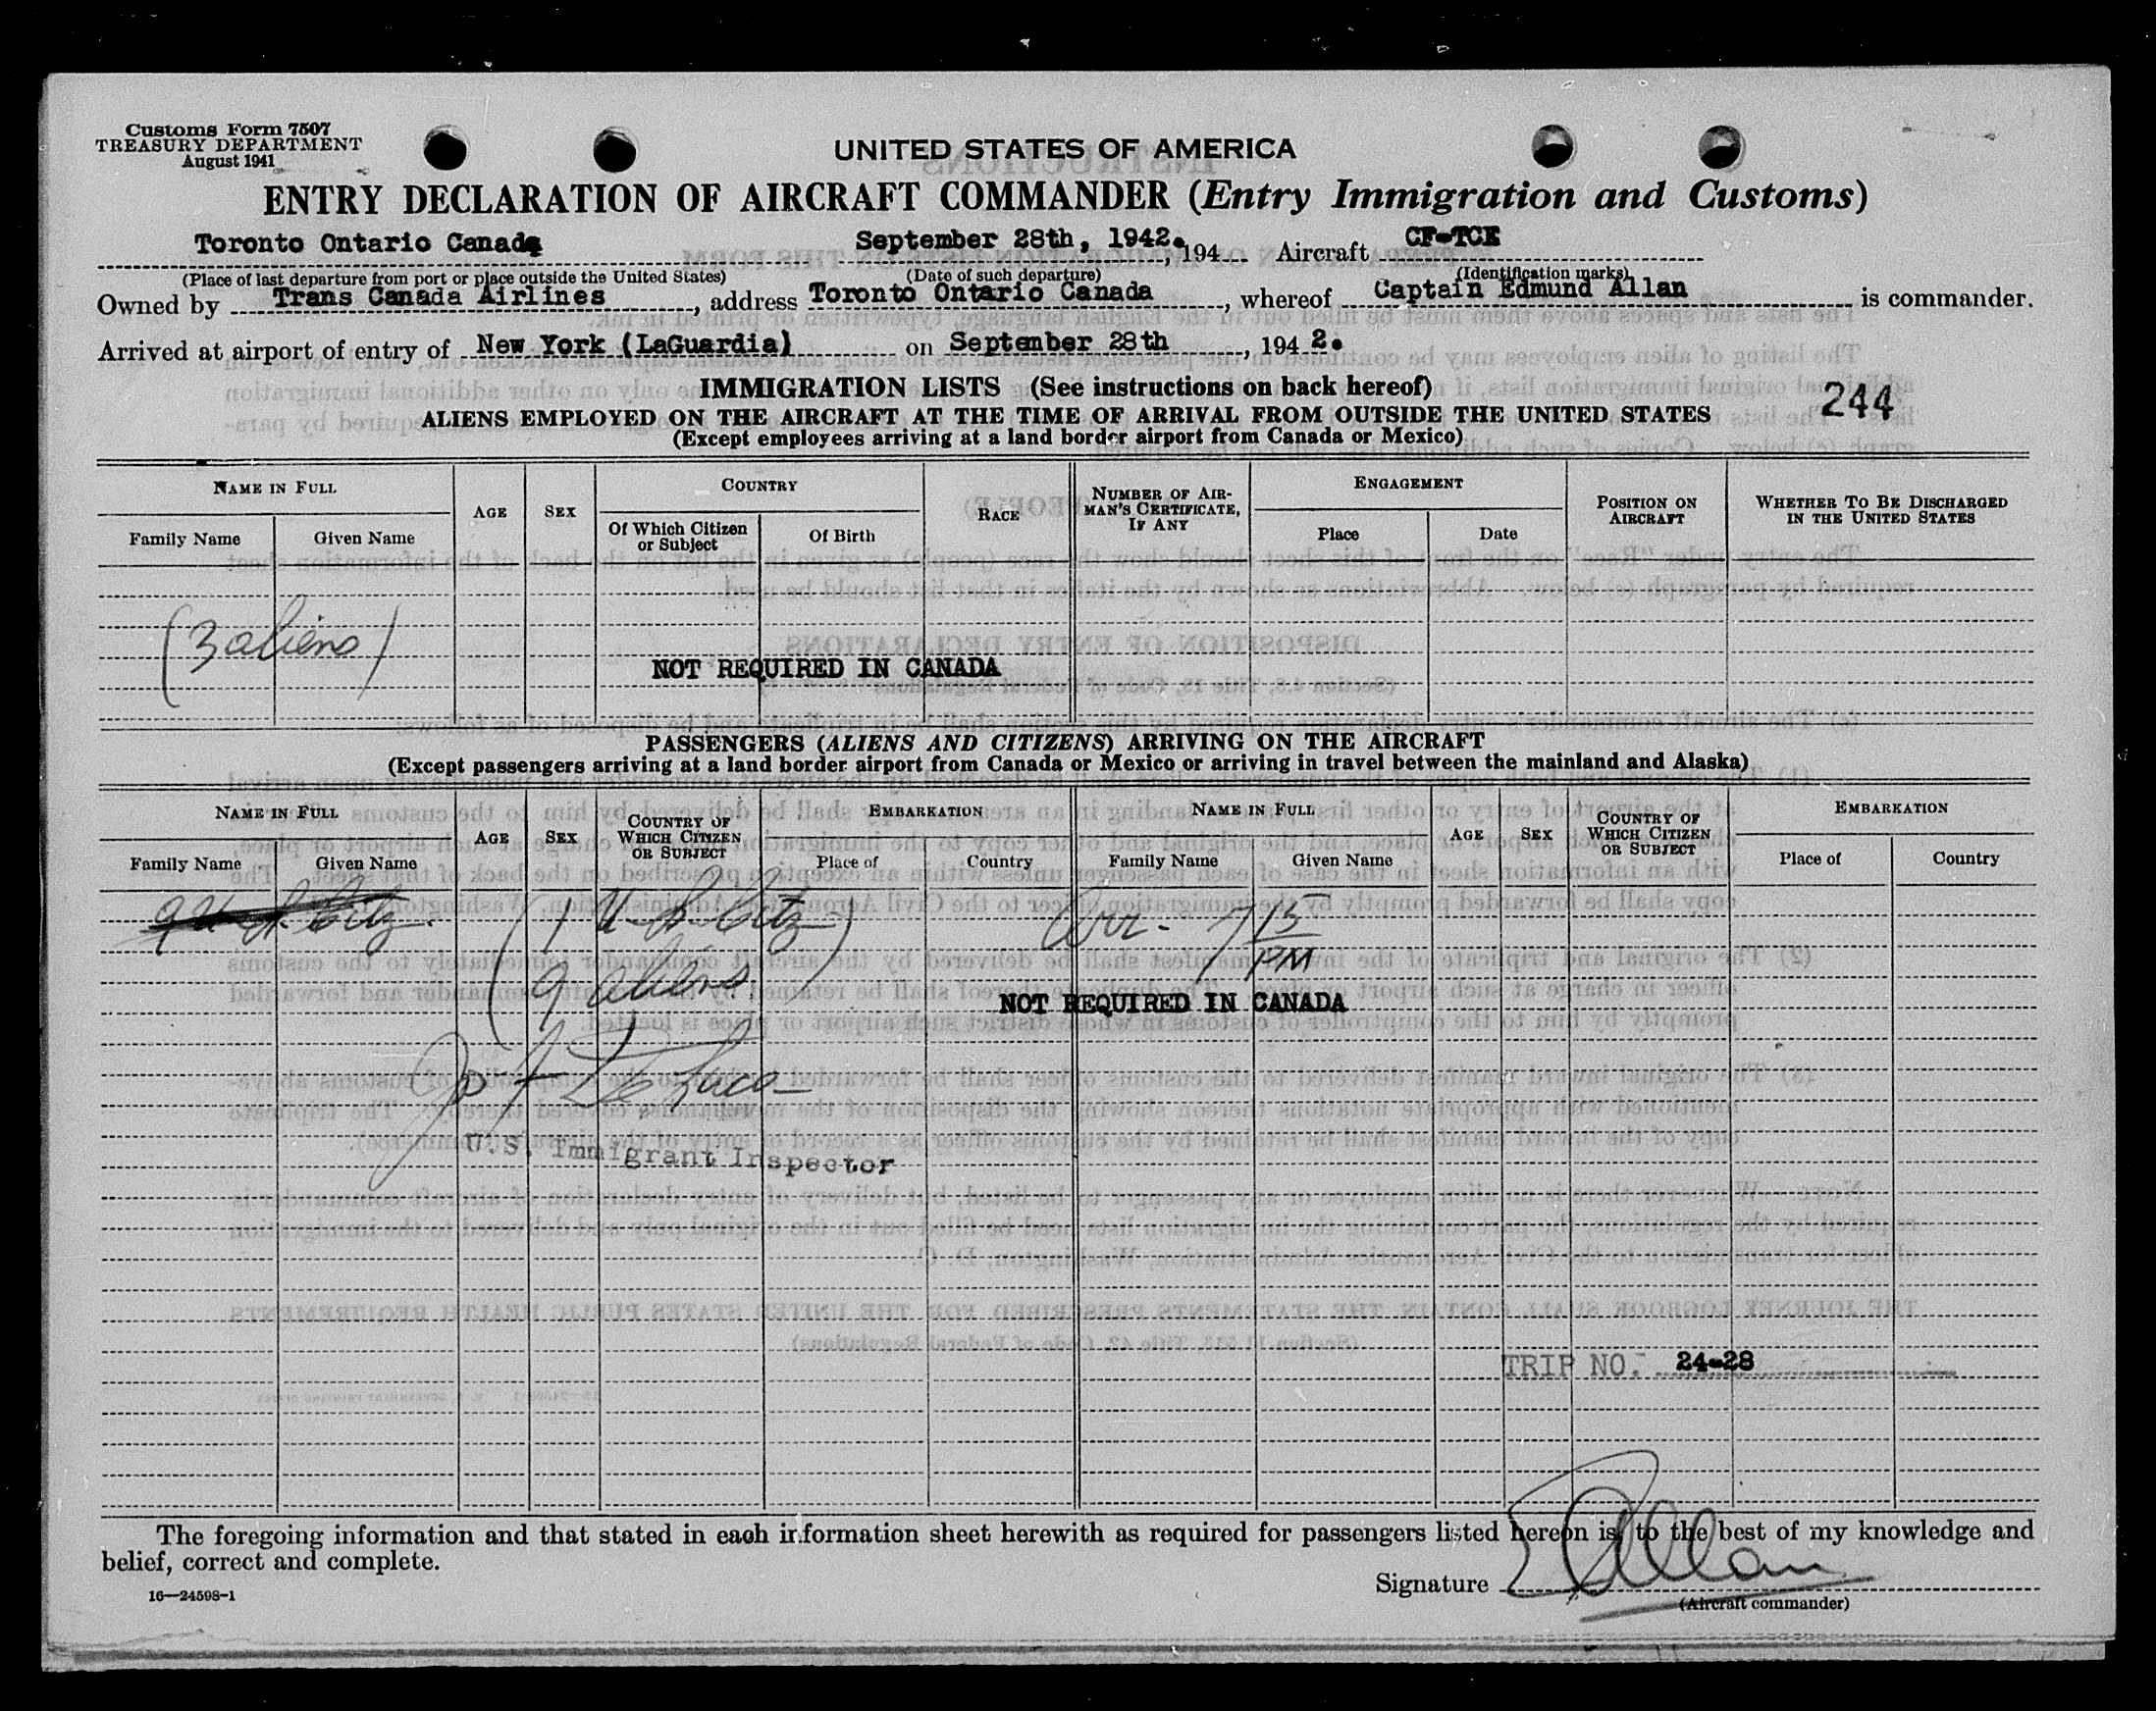 Customs Form 7507
TREASURY DEPARTMENT
August 1941
UNITED STATES OF AMERICA
ENTRY DECLARATION OF AIRCRAFT COMMANDER (Entry Immigration and Customs)
Toronto Ontario Canada September 28th, 1942. , 194 Aircraft CF-TCE
(Place of last departure from port or place outside the United States) (Date of such departure) (Identification marks)
Owned by Trans Canada Airlines , address Toronto Ontario Canada , whereof Captain Edmund Allan is commander.
Arrived at airport of entry of New York (LaGuardia) on September 28th , 194 2.
IMMIGRATION LISTS (See instructions on back hereof)
244
ALIENS EMPLOYED ON THE AIRCRAFT AT THE TIME OF ARRIVAL FROM OUTSIDE THE UNITED STATES
(Except employees arriving at a land border airport from Canada or Mexico)
NAME IN FULL AGE SEX COUNTRY RACE NUMBER OF AIRMAN'S CERTIFICATE, IF ANY ENGAGEMENT POSITION ON AIRCRAFT WHETHER TO BE DISCHARGED IN THE UNITED STATES
Family Name Given Name Of Which Citizen or Subject Of Birth Place Date
(3 aliens)
NOT REQUIRED IN CANADA
PASSENGERS (ALIENS AND CITIZENS) ARRIVING ON THE AIRCRAFT
(Except passengers arriving at a land border airport from Canada or Mexico or arriving in travel between the mainland and Alaska)
NAME IN FULL AGE SEX COUNTRY OF WHICH CITIZEN OR SUBJECT EMBARKATION NAME IN FULL AGE SEX COUNTRY OF WHICH CITIZEN OR SUBJECT EMBARKATION
Family Name Given Name Place of Country Family Name Given Name Place of Country
(1 U.S. Citz) Arr - 7 15 PM
(9 aliens)
NOT REQUIRED IN CANADA
U.S. Immigrant Inspector
TRIP NO. 24-28
The foregoing information and that stated in each information sheet herewith as required for passengers listed hereon is, to the best of my knowledge and
belief, correct and complete.
Signature E Allan
(Aircraft commander)
16—24598-1